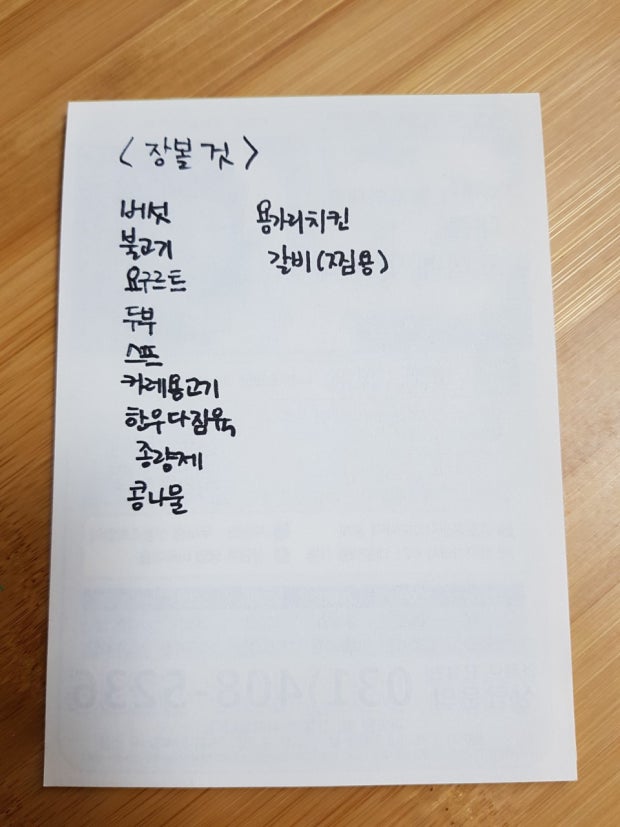 <장볼 것>
버섯
불고기
요구르트
두부
스프
카레용고기
한우다짐육
종량제
콩나물
용가리치킨
갈비(찜용)
031)408-5236